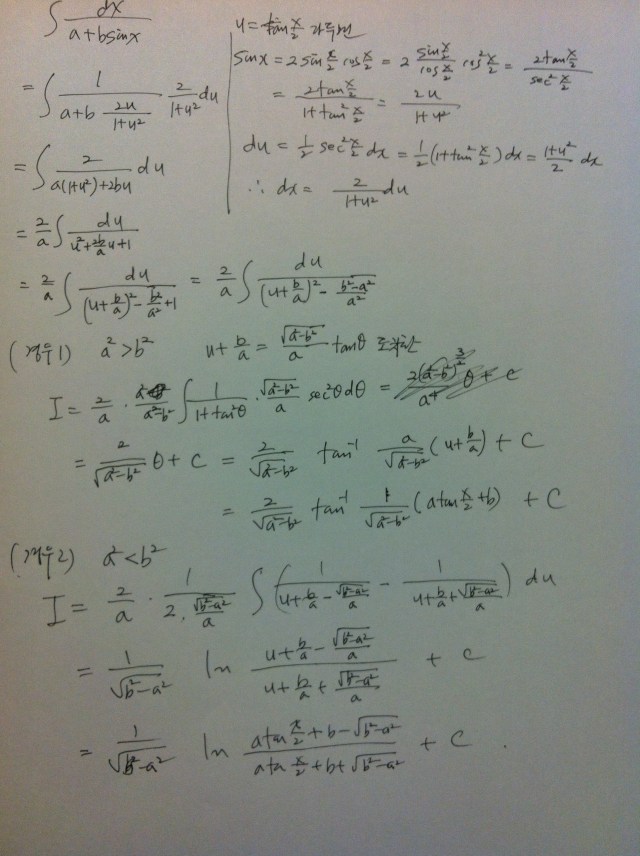 ∫ dx/(a+b sinx)
= ∫ 1/(a+b 2u/(1+u²)) · 2/(1+u²) du
= ∫ 2/(a(1+u²)+2bu) du
= 2/a ∫ du/(u²+(2b/a)u+1)
= 2/a ∫ du/((u+b/a)² - b²/a² + 1) = 2/a ∫ du/((u+b/a)² - (b²-a²)/a²)
u = tan x/2 라 두면
sinx = 2 sin x/2 cos x/2 = 2 (sin x/2)/(cos x/2) cos² x/2 = (2tan x/2)/(sec² x/2)
= (2tan x/2)/(1+tan² x/2) = 2u/(1+u²)
du = 1/2 sec² x/2 dx = 1/2 (1+tan² x/2) dx = (1+u²)/2 dx
∴ dx = 2/(1+u²) du
(경우1) a² > b² u + b/a = √(a²-b²)/a tanθ
I = 2/a · a²/(a²-b²) ∫ 1/(1+tan²θ) · √(a²-b²)/a sec²θ dθ =
= 2/√(a²-b²) θ + C = 2/√(a²-b²) tan⁻¹ a/√(a²-b²) (u + b/a) + C
= 2/√(a²-b²) tan⁻¹ 1/√(a²-b²) (a tan x/2 + b) + C
(경우2) a² < b²
I = 2/a · 1/(2·√(b²-a²)/a) ∫ (1/(u+b/a - √(b²-a²)/a) - 1/(u+b/a + √(b²-a²)/a)) du
= 1/√(b²-a²) ln (u+b/a - √(b²-a²)/a)/(u+b/a + √(b²-a²)/a) + C
= 1/√(b²-a²) ln (a tan x/2 + b - √(b²-a²))/(a ta x/2 + b + √(b²-a²)) + C .